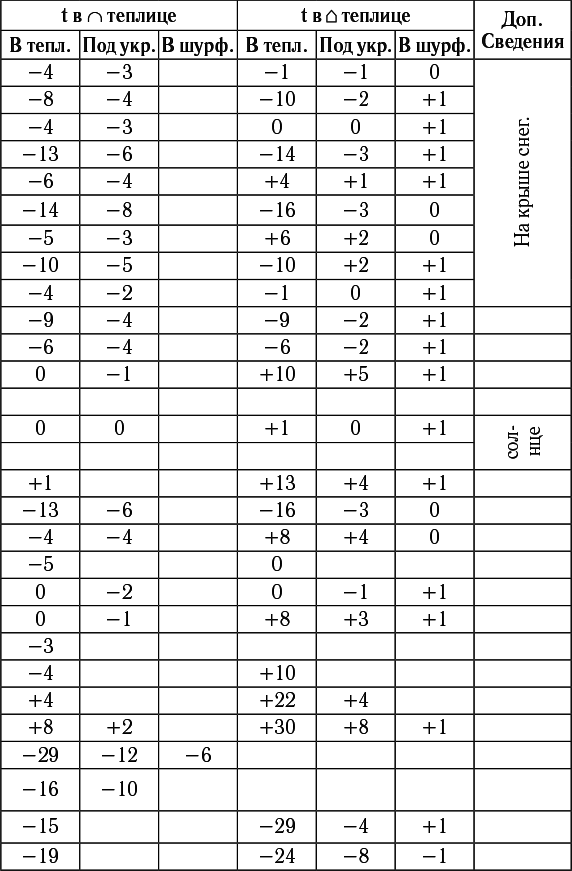 t в ⌒ теплице t в ⌂ теплице Доп. Сведения
В тепл. Под укр. В шурф. В тепл. Под укр. В шурф.
−4 −3 −1 −1 0 На крыше снег.
−8 −4 −10 −2 +1
−4 −3 0 0 +1
−13 −6 −14 −3 +1
−6 −4 +4 +1 +1
−14 −8 −16 −3 0
−5 −3 +6 +2 0
−10 −5 −10 +2 +1
−4 −2 −1 0 +1
−9 −4 −9 −2 +1
−6 −4 −6 −2 +1
0 −1 +10 +5 +1
0 0 +1 0 +1 сол-
нце
+1 +13 +4 +1
−13 −6 −16 −3 0
−4 −4 +8 +4 0
−5 0
0 −2 0 −1 +1
0 −1 +8 +3 +1
−3
−4 +10
+4 +22 +4
+8 +2 +30 +8 +1
−29 −12 −6
−16 −10
−15 −29 −4 +1
−19 −24 −8 −1